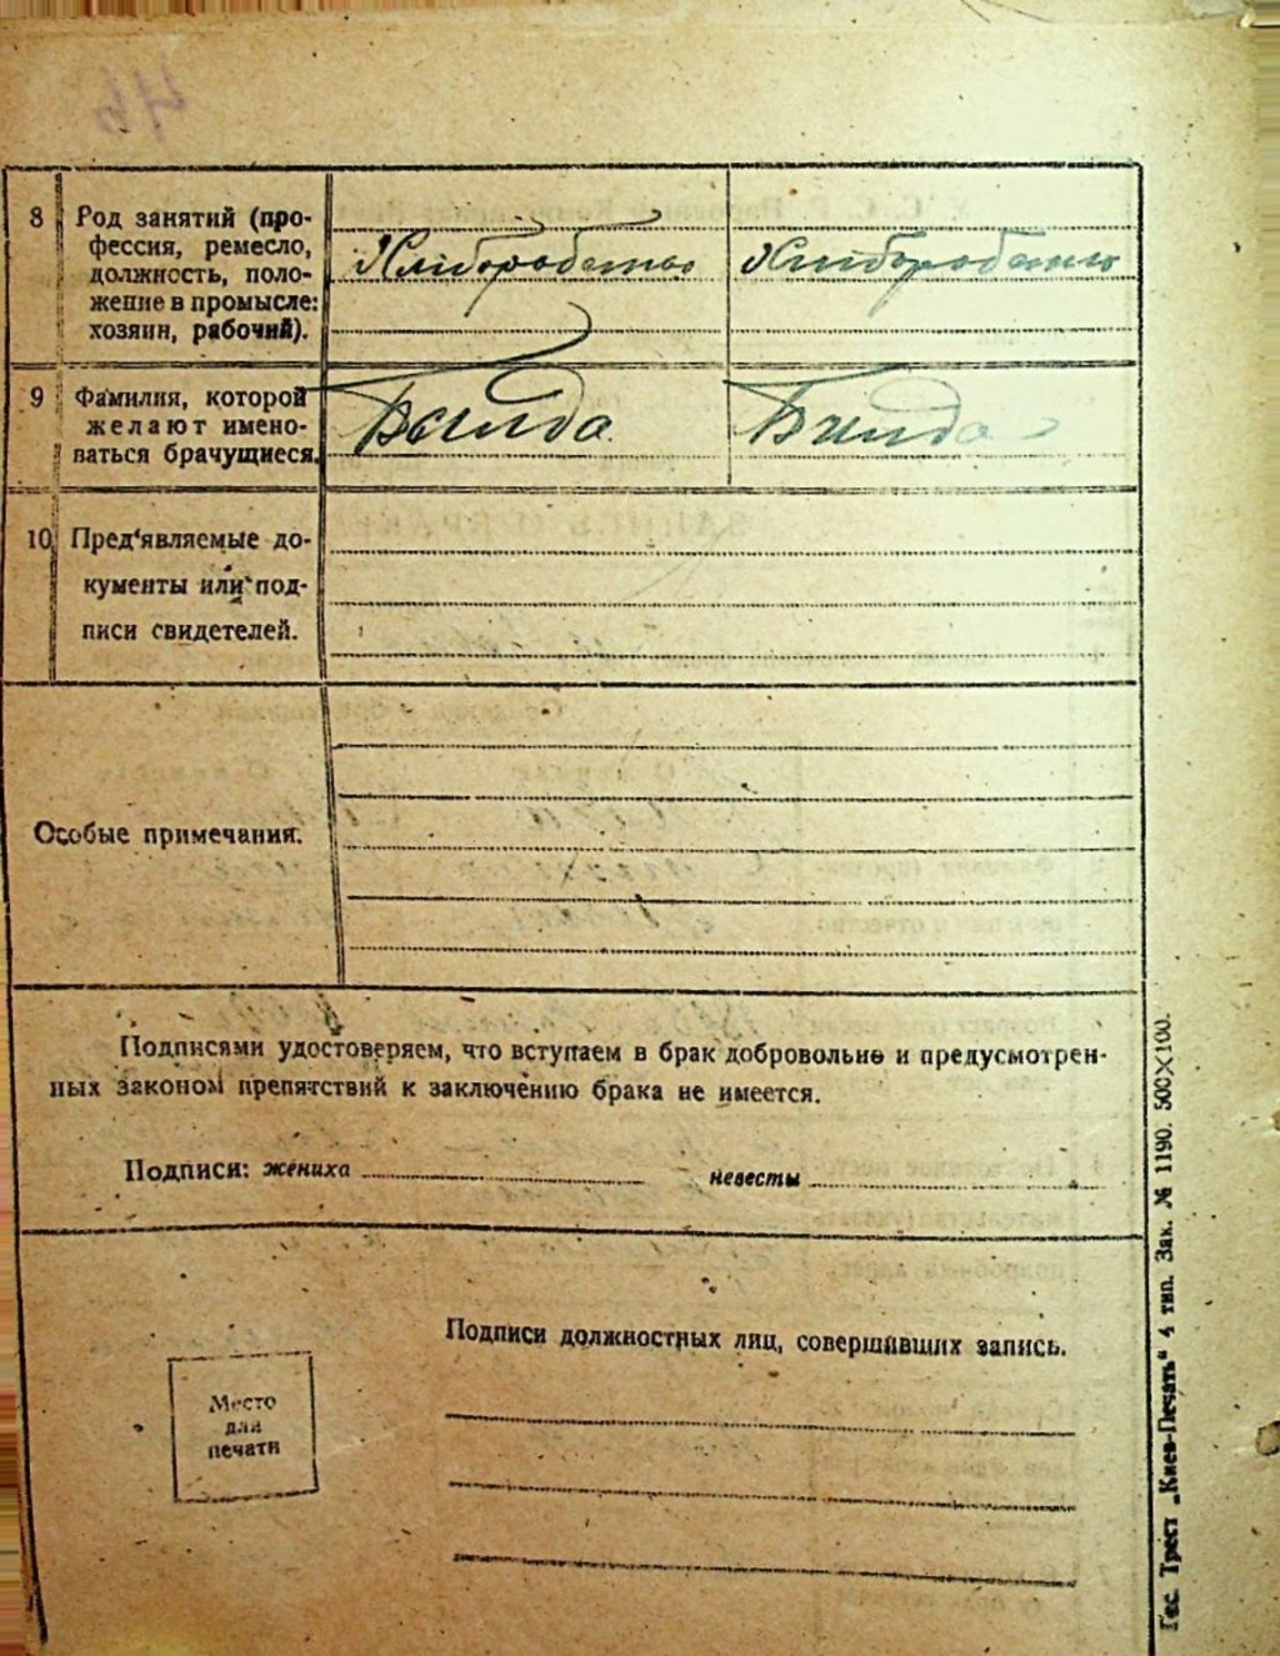 8 Род занятий (про-
фессия, ремесло,
должность, поло-
жение в промысле:
хозяин, рабочий).
Хліборобство Хліборобство
9 Фамилия, которой
желают имено-
ваться брачущиеся.
10 Пред‘являемые до-
кументы или под-
писи свидетелей.
Особые примечания.
Подписями удостоверяем, что вступаем в брак добровольно и предусмотрен-
ных законом препятствий к заключению брака не имеется.
Подписи: жениха невесты
Подписи должностных лиц, совершивших запись.
Место
для
печати
Гос. Трест „Киев-Печать“ 4 тип. Зак. № 1190. 500×100.